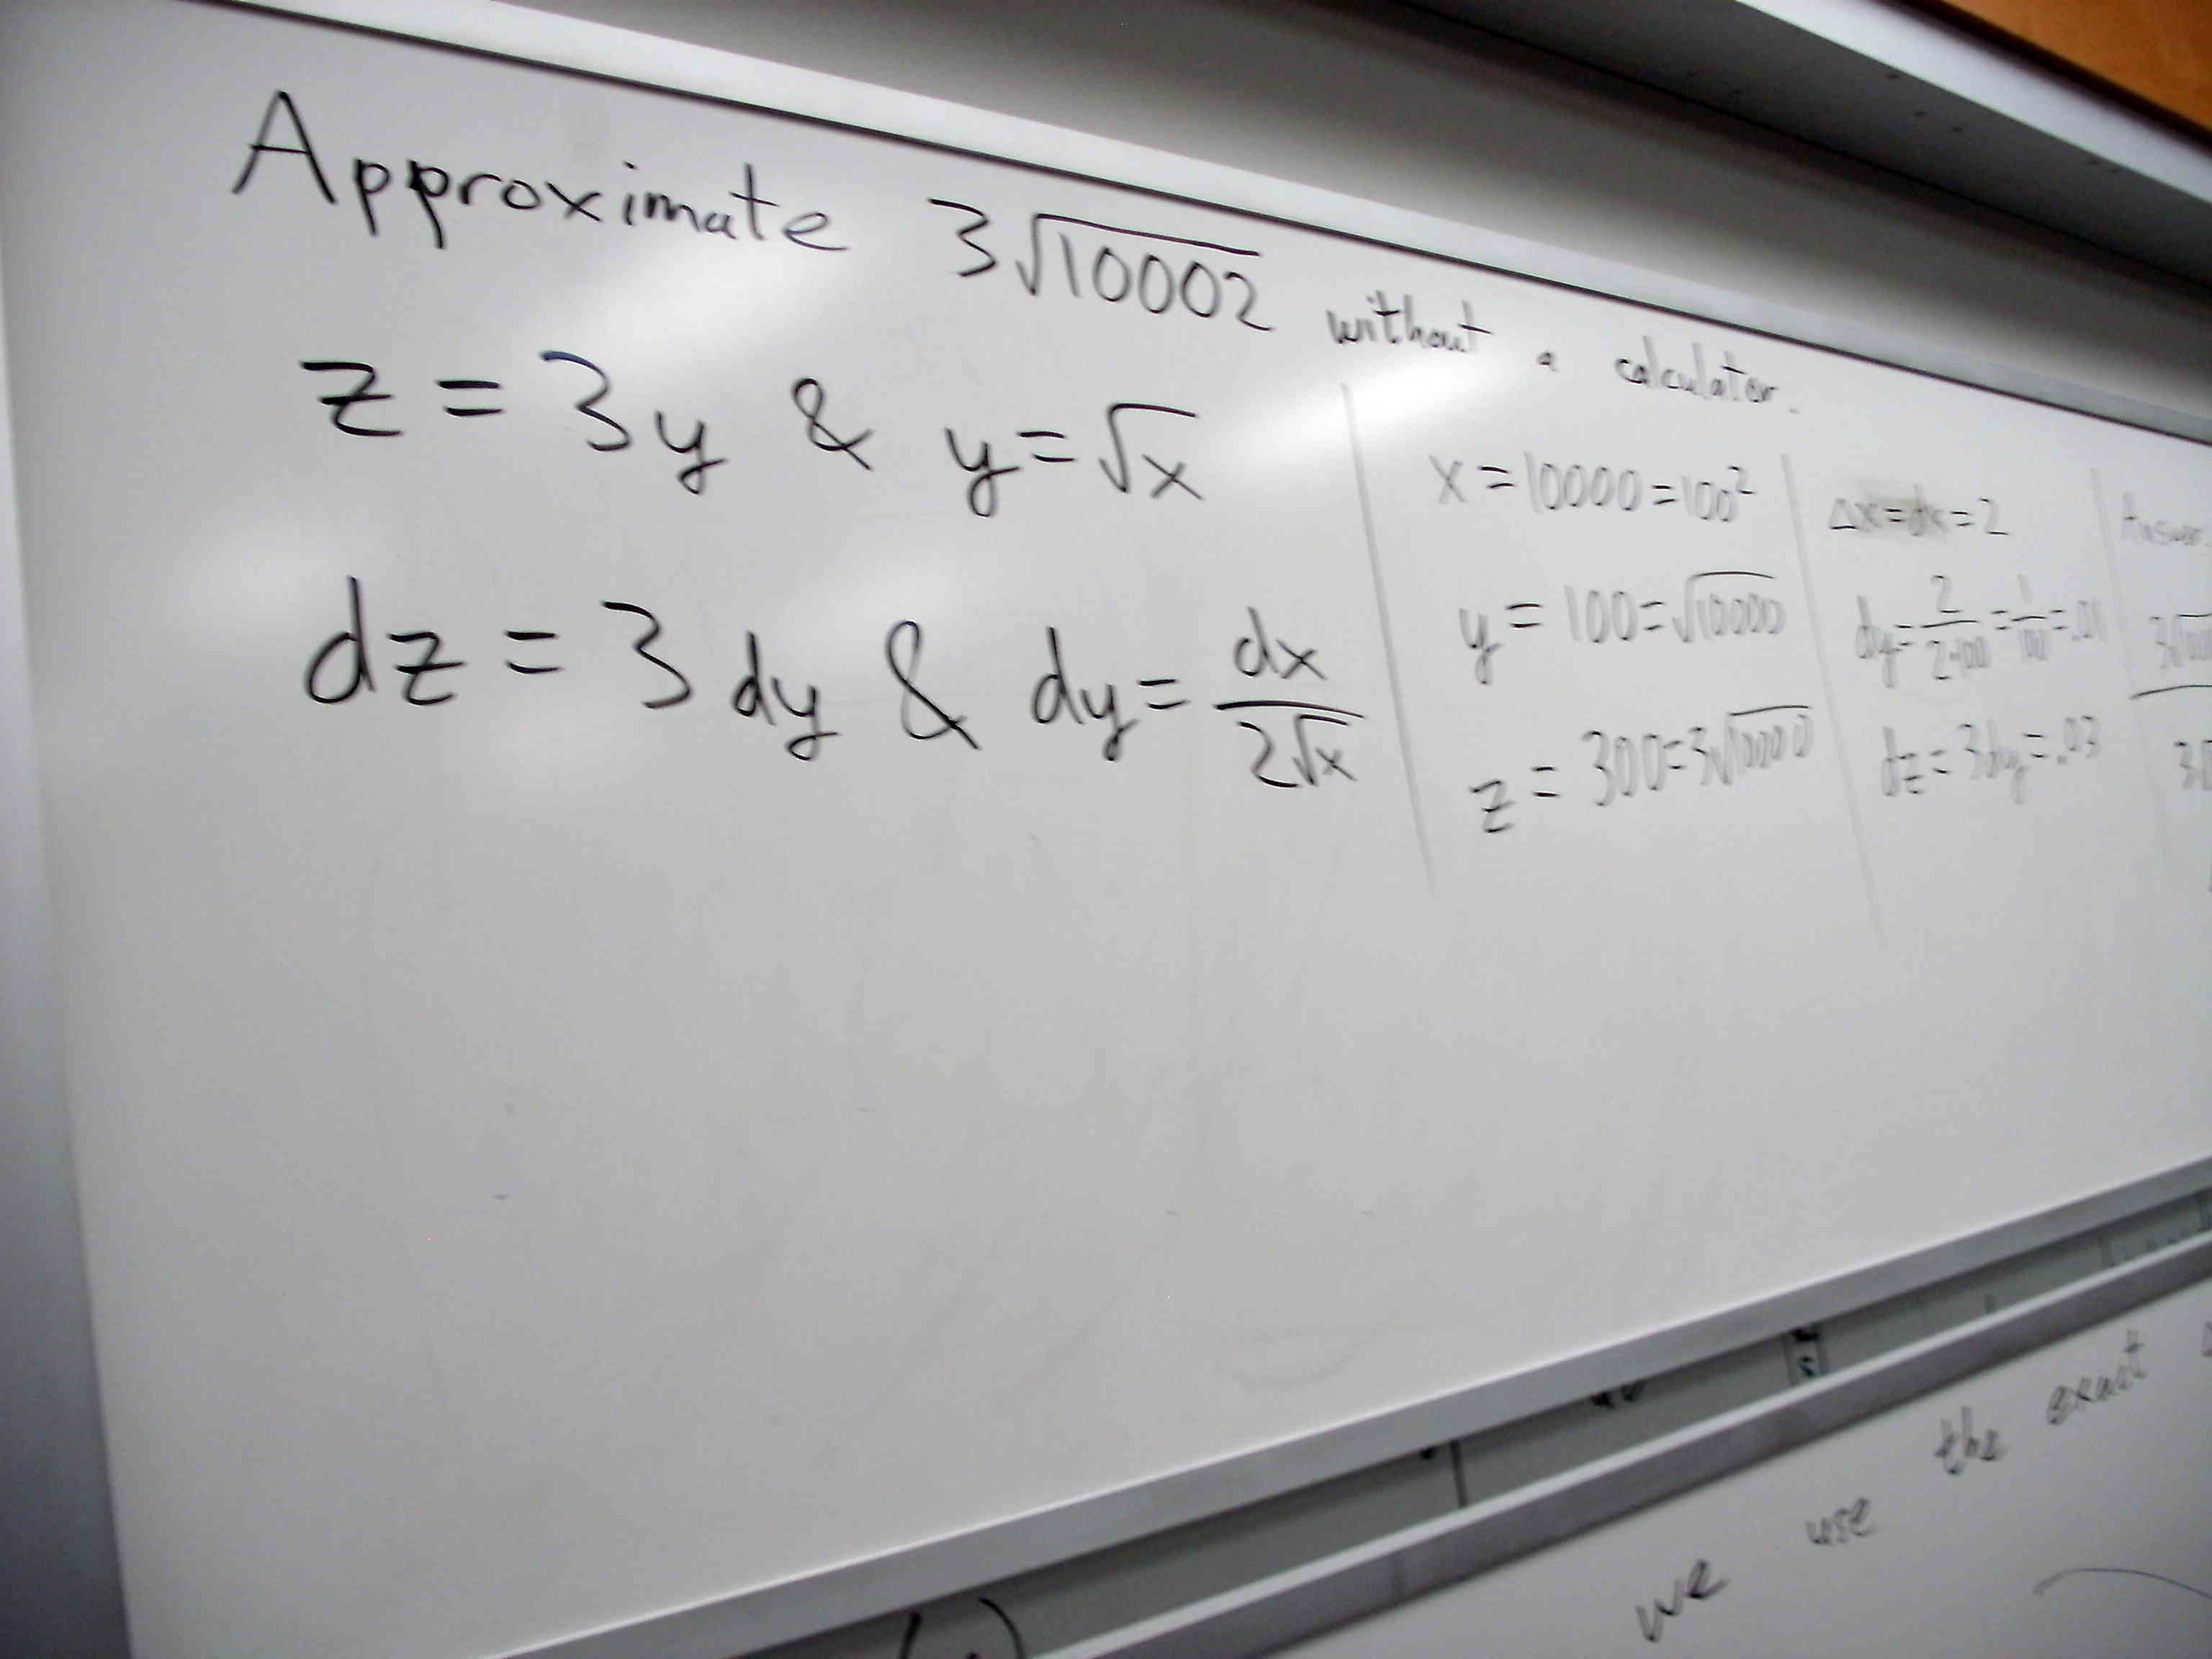 Approximate 3√10002 without a calculator.
z = 3y & y = √x
dz = 3 dy & dy = dx/2√x
x = 10000 = 100²
y = 100 = √10000
z = 300 = 3√10000
Δx = dx = 2
dy = 2/2·100 = 1/100 = .01
dz = 3dy = .03
Answer
we use the exact